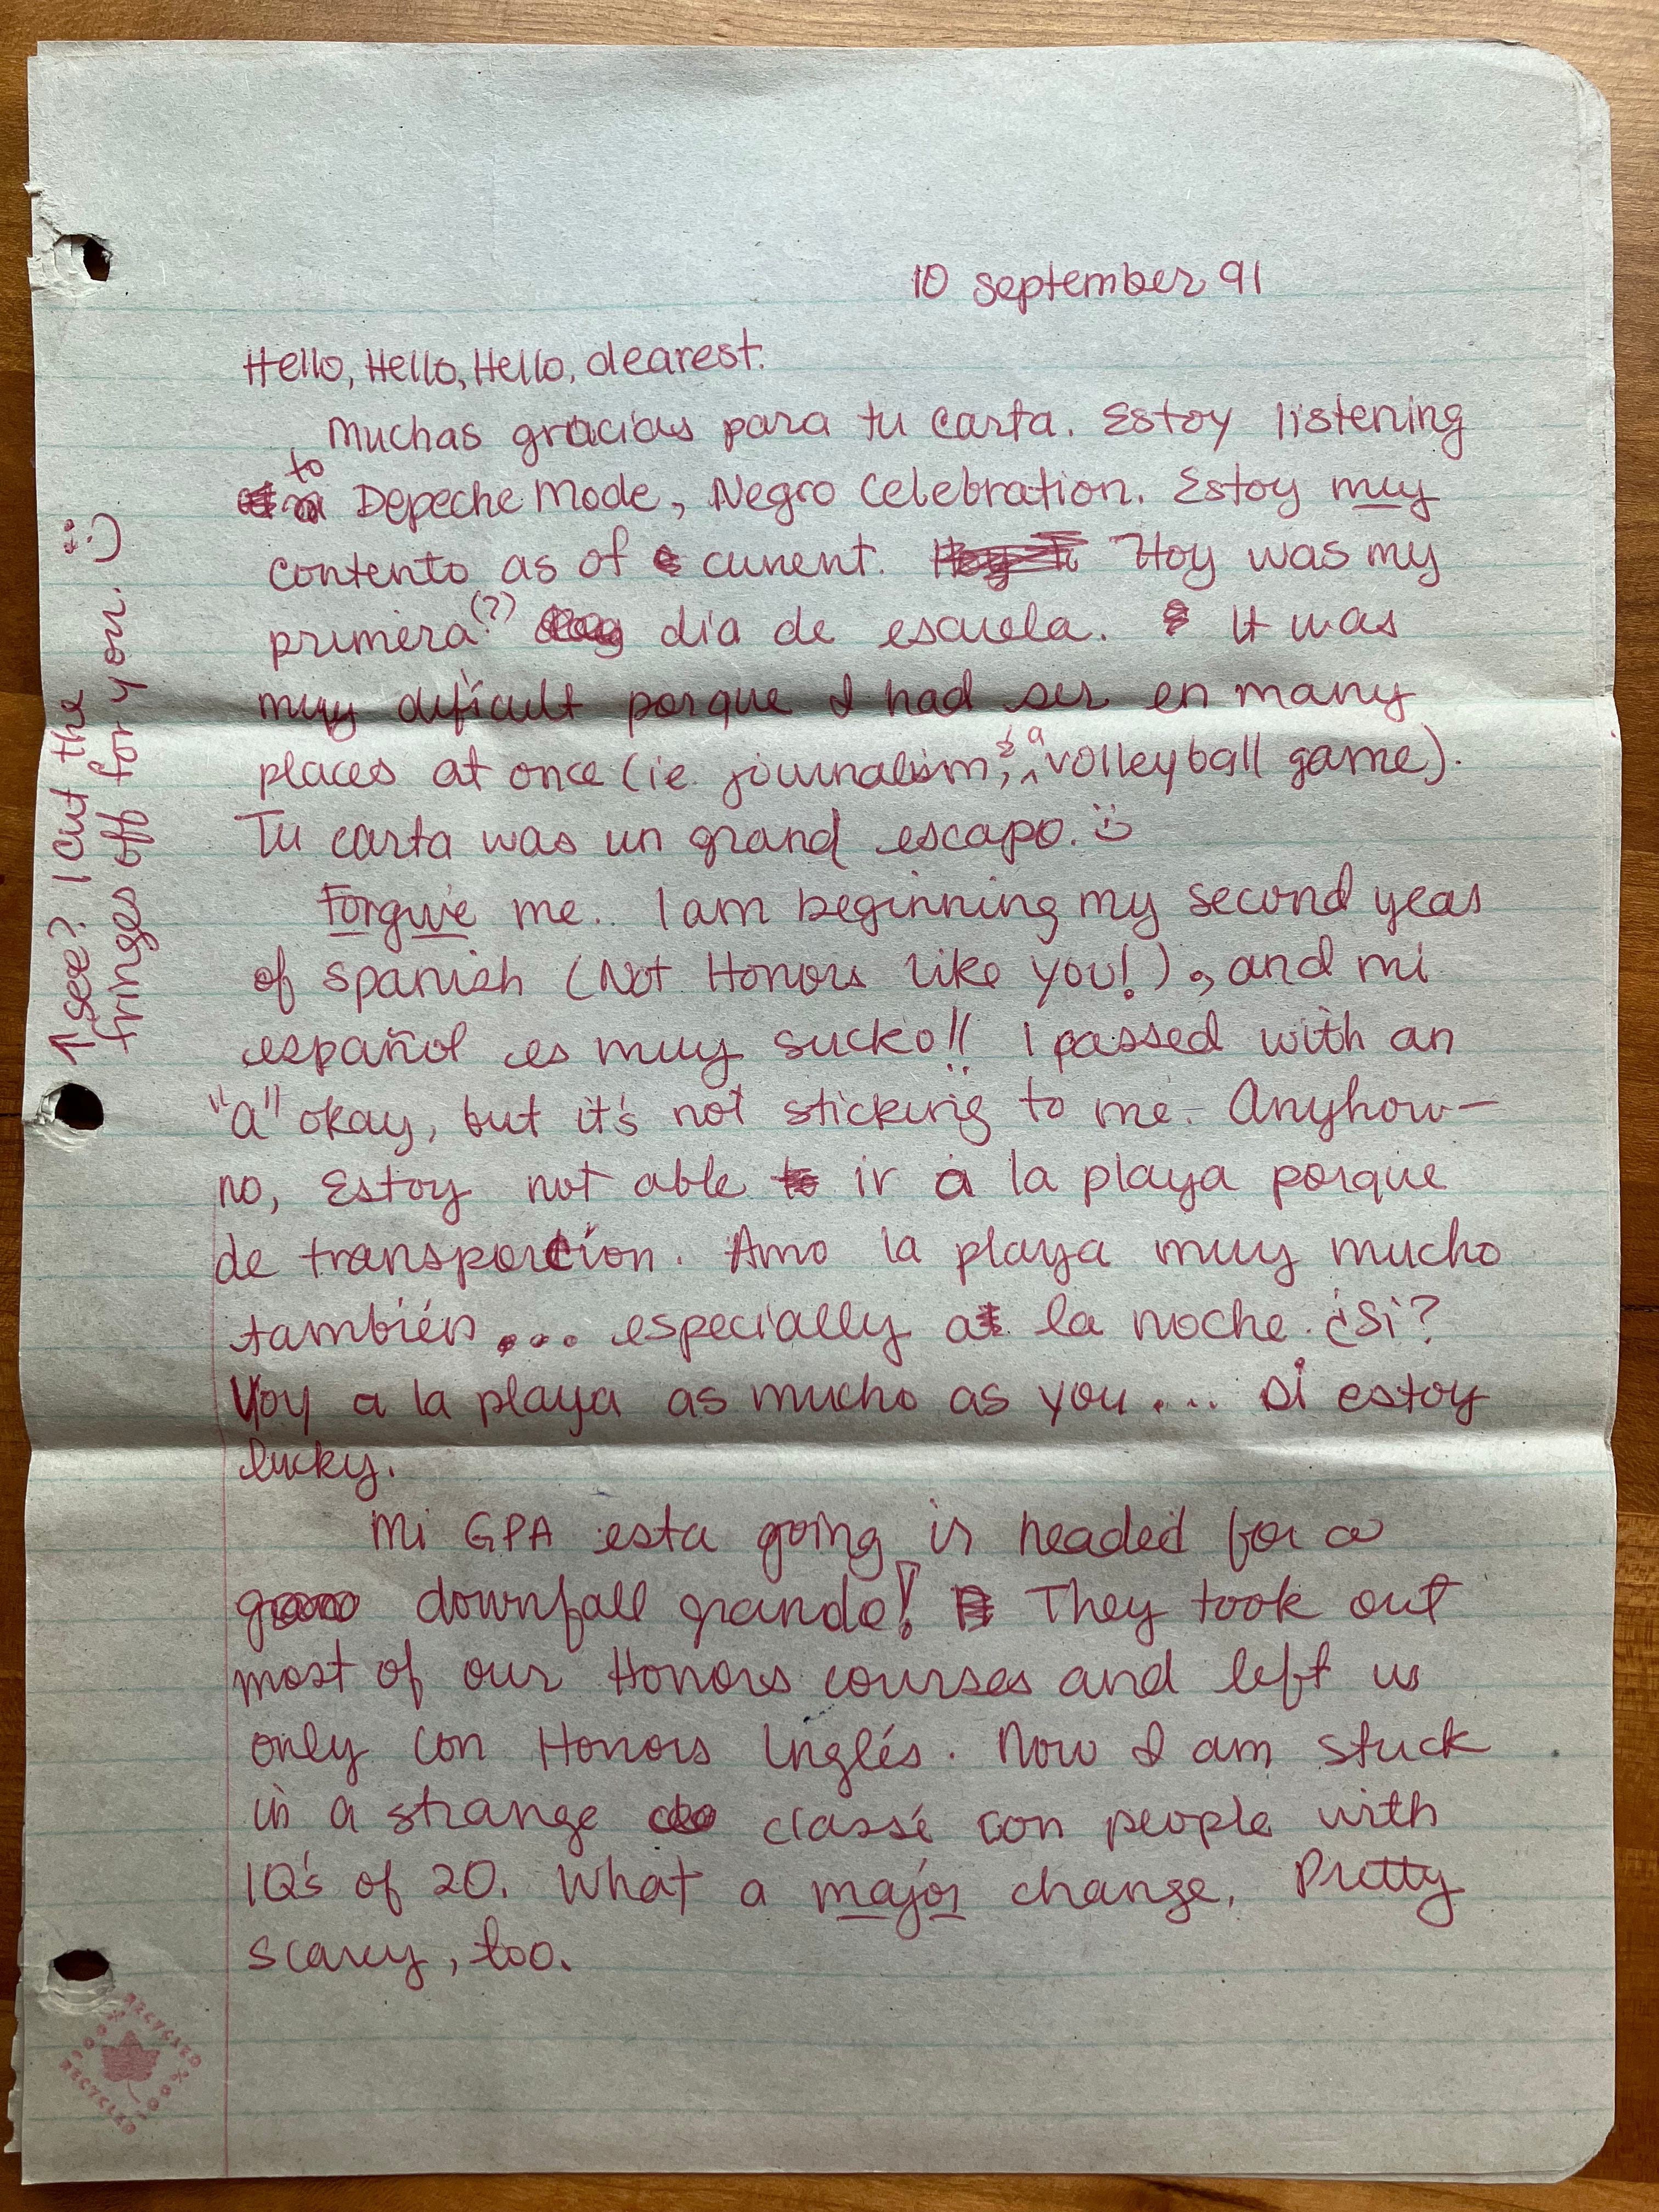 10 september 91
Hello, Hello, Hello, dearest.
Muchas gracias para tu carta. Estoy listening
to Depeche Mode, Negro Celebration. Estoy muy
contento as of current. Hoy was my
primera(?) día de escuela. It was
muy difícult porque I had ser en many
places at once (ie. journalism, & a volleyball game).
Tu carta was un grand escapo. :)
Forgive me.. I am beginning my second year
of spanish (Not Honors like you!), and mi
español es muy sucko!! I passed with an
"a" okay, but it's not sticking to me. Anyhow—
no, Estoy not able ir a la playa porque
de transporcíon. Amo la playa muy mucho
también.... especially a la noche. ¿Si?
Voy a la playa as mucho as you.... si estoy
lucky.
Mi GPA esta going is headed for a
downfall grande! They took out
most of our Honors courses and left us
only con Honors Inglés. Now I am stuck
in a strange classé con people with
IQ's of 20. What a major change. Pretty
scary, too.
↑ see? I cut the
fringes off for you. :)
100% RECYCLED
100% RECYCLED